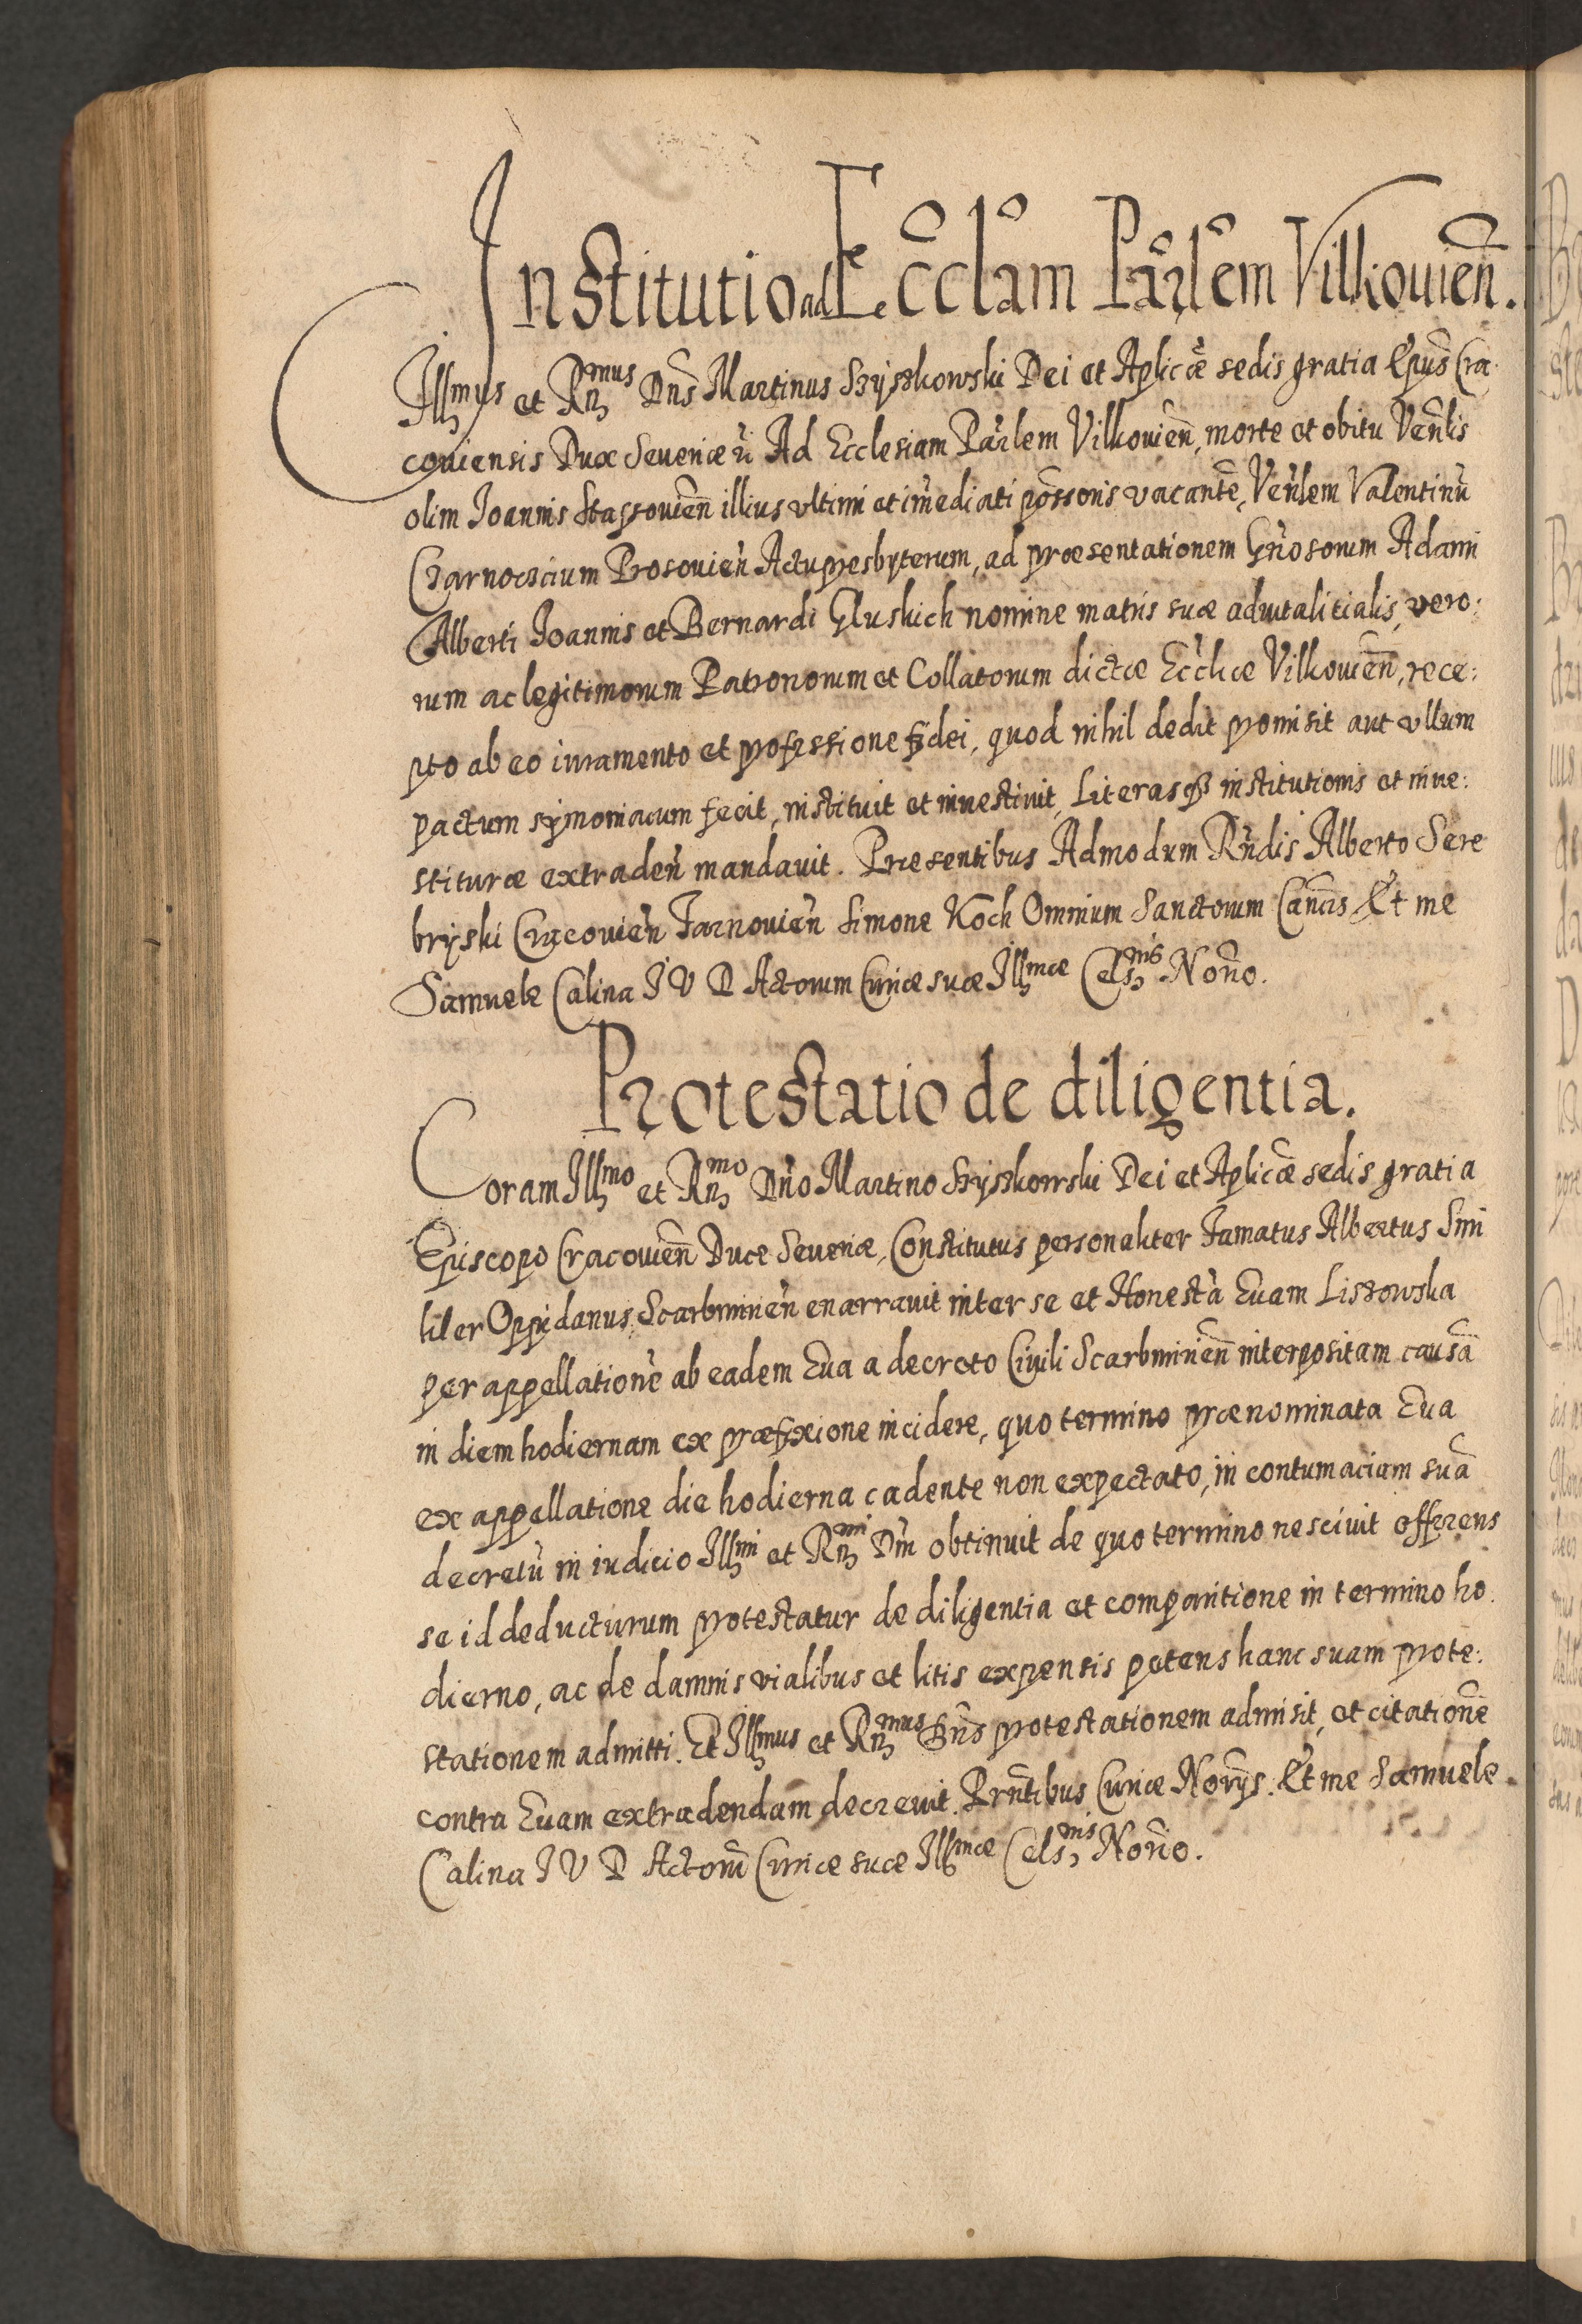 Institutio ad Ecclam Parlem Vilkouien.
Illmus et Rnmus Dns Martinus Szyszkowski Dei et Aplicæ sedis gratia Epus Cra
couiensis Dux Seueriæ Ad Ecclesiam Parlem Vilkouien, morte et obitu Venlis
olim Joannis Stassouien illius vltimi et imediati possoris vacante, Venlem Valentinu
Czarnocicium Prosouien Actu presbyterum, ad præsentationem Gnosorum Adami
Alberti Joannis et Bernardi Gluskich nomine matris suæ aduitalitialis, vero:
rum ac legitimorum Patronorum et Collatorum dictæ Ecclicæ Vilkouien, rece:
pto ab eo iuramento et professione fidei, quod nihil dedit promisit aut vllum
pactum symoniacum fecit, instituit et inuestiuit, Literasq3 institutionis et inue:
stituræ extraden mandauit. Præsentibus Admodum Rndis Alberto Sere
bryski Cracouien Tarnouien Simone Koch Omnium Sanctorum Cancis Et me
Samuele Calina J V D Actorum Curiæ suæ Illmæ Celsnis Norio.
Protestatio de diligentia.
Coram Illmo et Rnmo Dno Martino Szyszkowski Dei et Aplicæ sedis gratia
Episcopo Cracouien Duce Seueriæ, Constitutus personaliter Famatus Albertus Smi
liler Oppidanus Scarbmirien enarrauit inter se et Honesta Euam Liszowska
per appellatione ab eadem Eua a decreto Ciuili Scarbmirien interpositam causa
in diem hodiernam ex præfixione incidere, quo termino prænominata Eua
ex appellatione die hodierna cadente non expectato, in contumaciam sua
decretu in iudicio Illmi et Rnmi Dni obtinuit de quo termino nesciuit offerens
se id deducturum protestatur de diligentia et comparitione in termino ho.
dierno, ac de damnis vialibus et litis expensis petens hanc suam prote:
stationem admitti. Et Illmus et Rnmus Dns protestationem admisit, et citatione
contra Euam extradendam decreuit. Prntibus Curiæ Norijs. Et me Samuele
Calina J V D Actoru Curiæ suæ Illmæ Celsnis Norio.